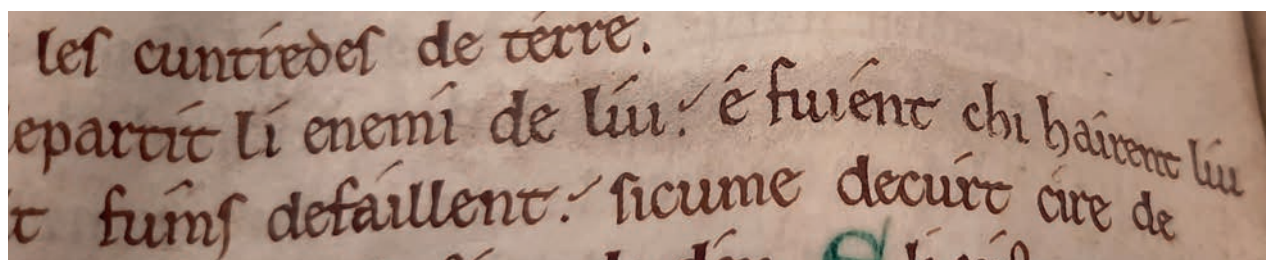 les cuntredes de terre.
epartit li enemi de liu: é fuient chi haïrent liu
t fums defaillent: sicume decurt cire de